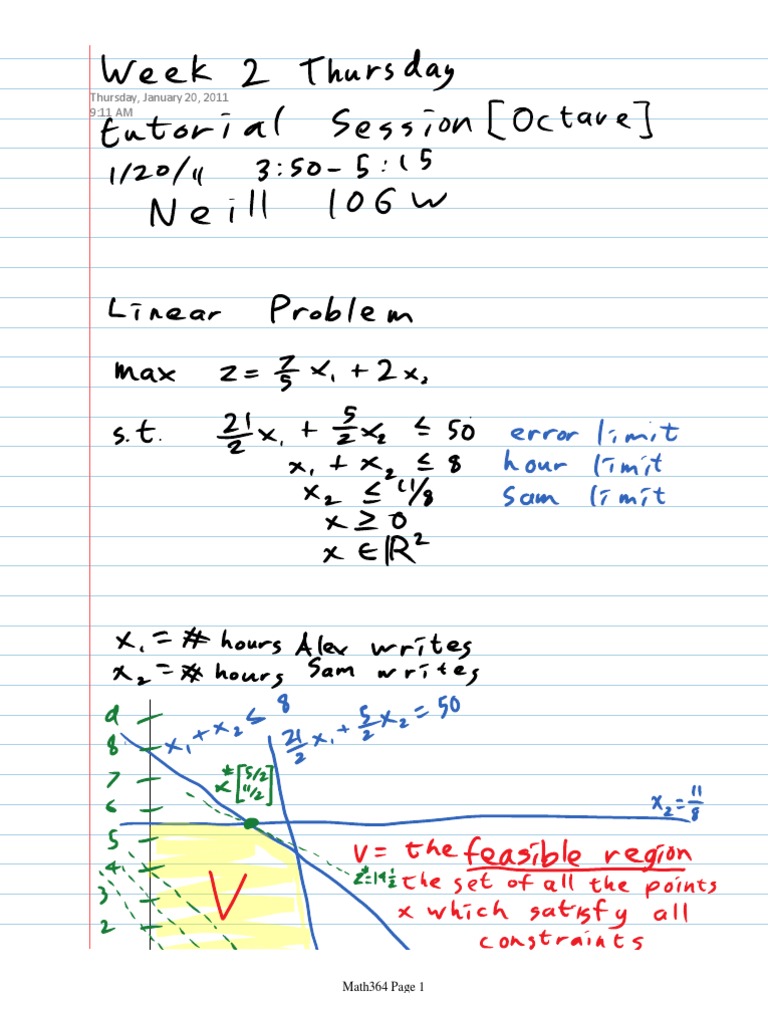 Week 2 Thursday
Thursday, January 20, 2011
9:11 AM
tutorial Session [Octave]
1/20/11 3:50-5:15
Neill 106W
Linear Problem
max z = 7/5 x₁ + 2x₂
s.t. 21/2 x₁ + 5/2 x₂ ≤ 50 error limit
x₁ + x₂ ≤ 8 hour limit
x₂ ≤ 11/8 Sam limit
x ≥ 0
x ∈ ℝ²
x₁ = # hours Alex writes
x₂ = # hours Sam writes
9
8 x₁ + x₂ ≤ 8 21/2 x₁ + 5/2 x₂ = 50
7 x* [5/2 11/2]
6 x₂ = 11/8
5 V = the feasible region
4 z* = 14 1/2 the set of all the points
3 V x which satisfy all
2 constraints
Math364 Page 1